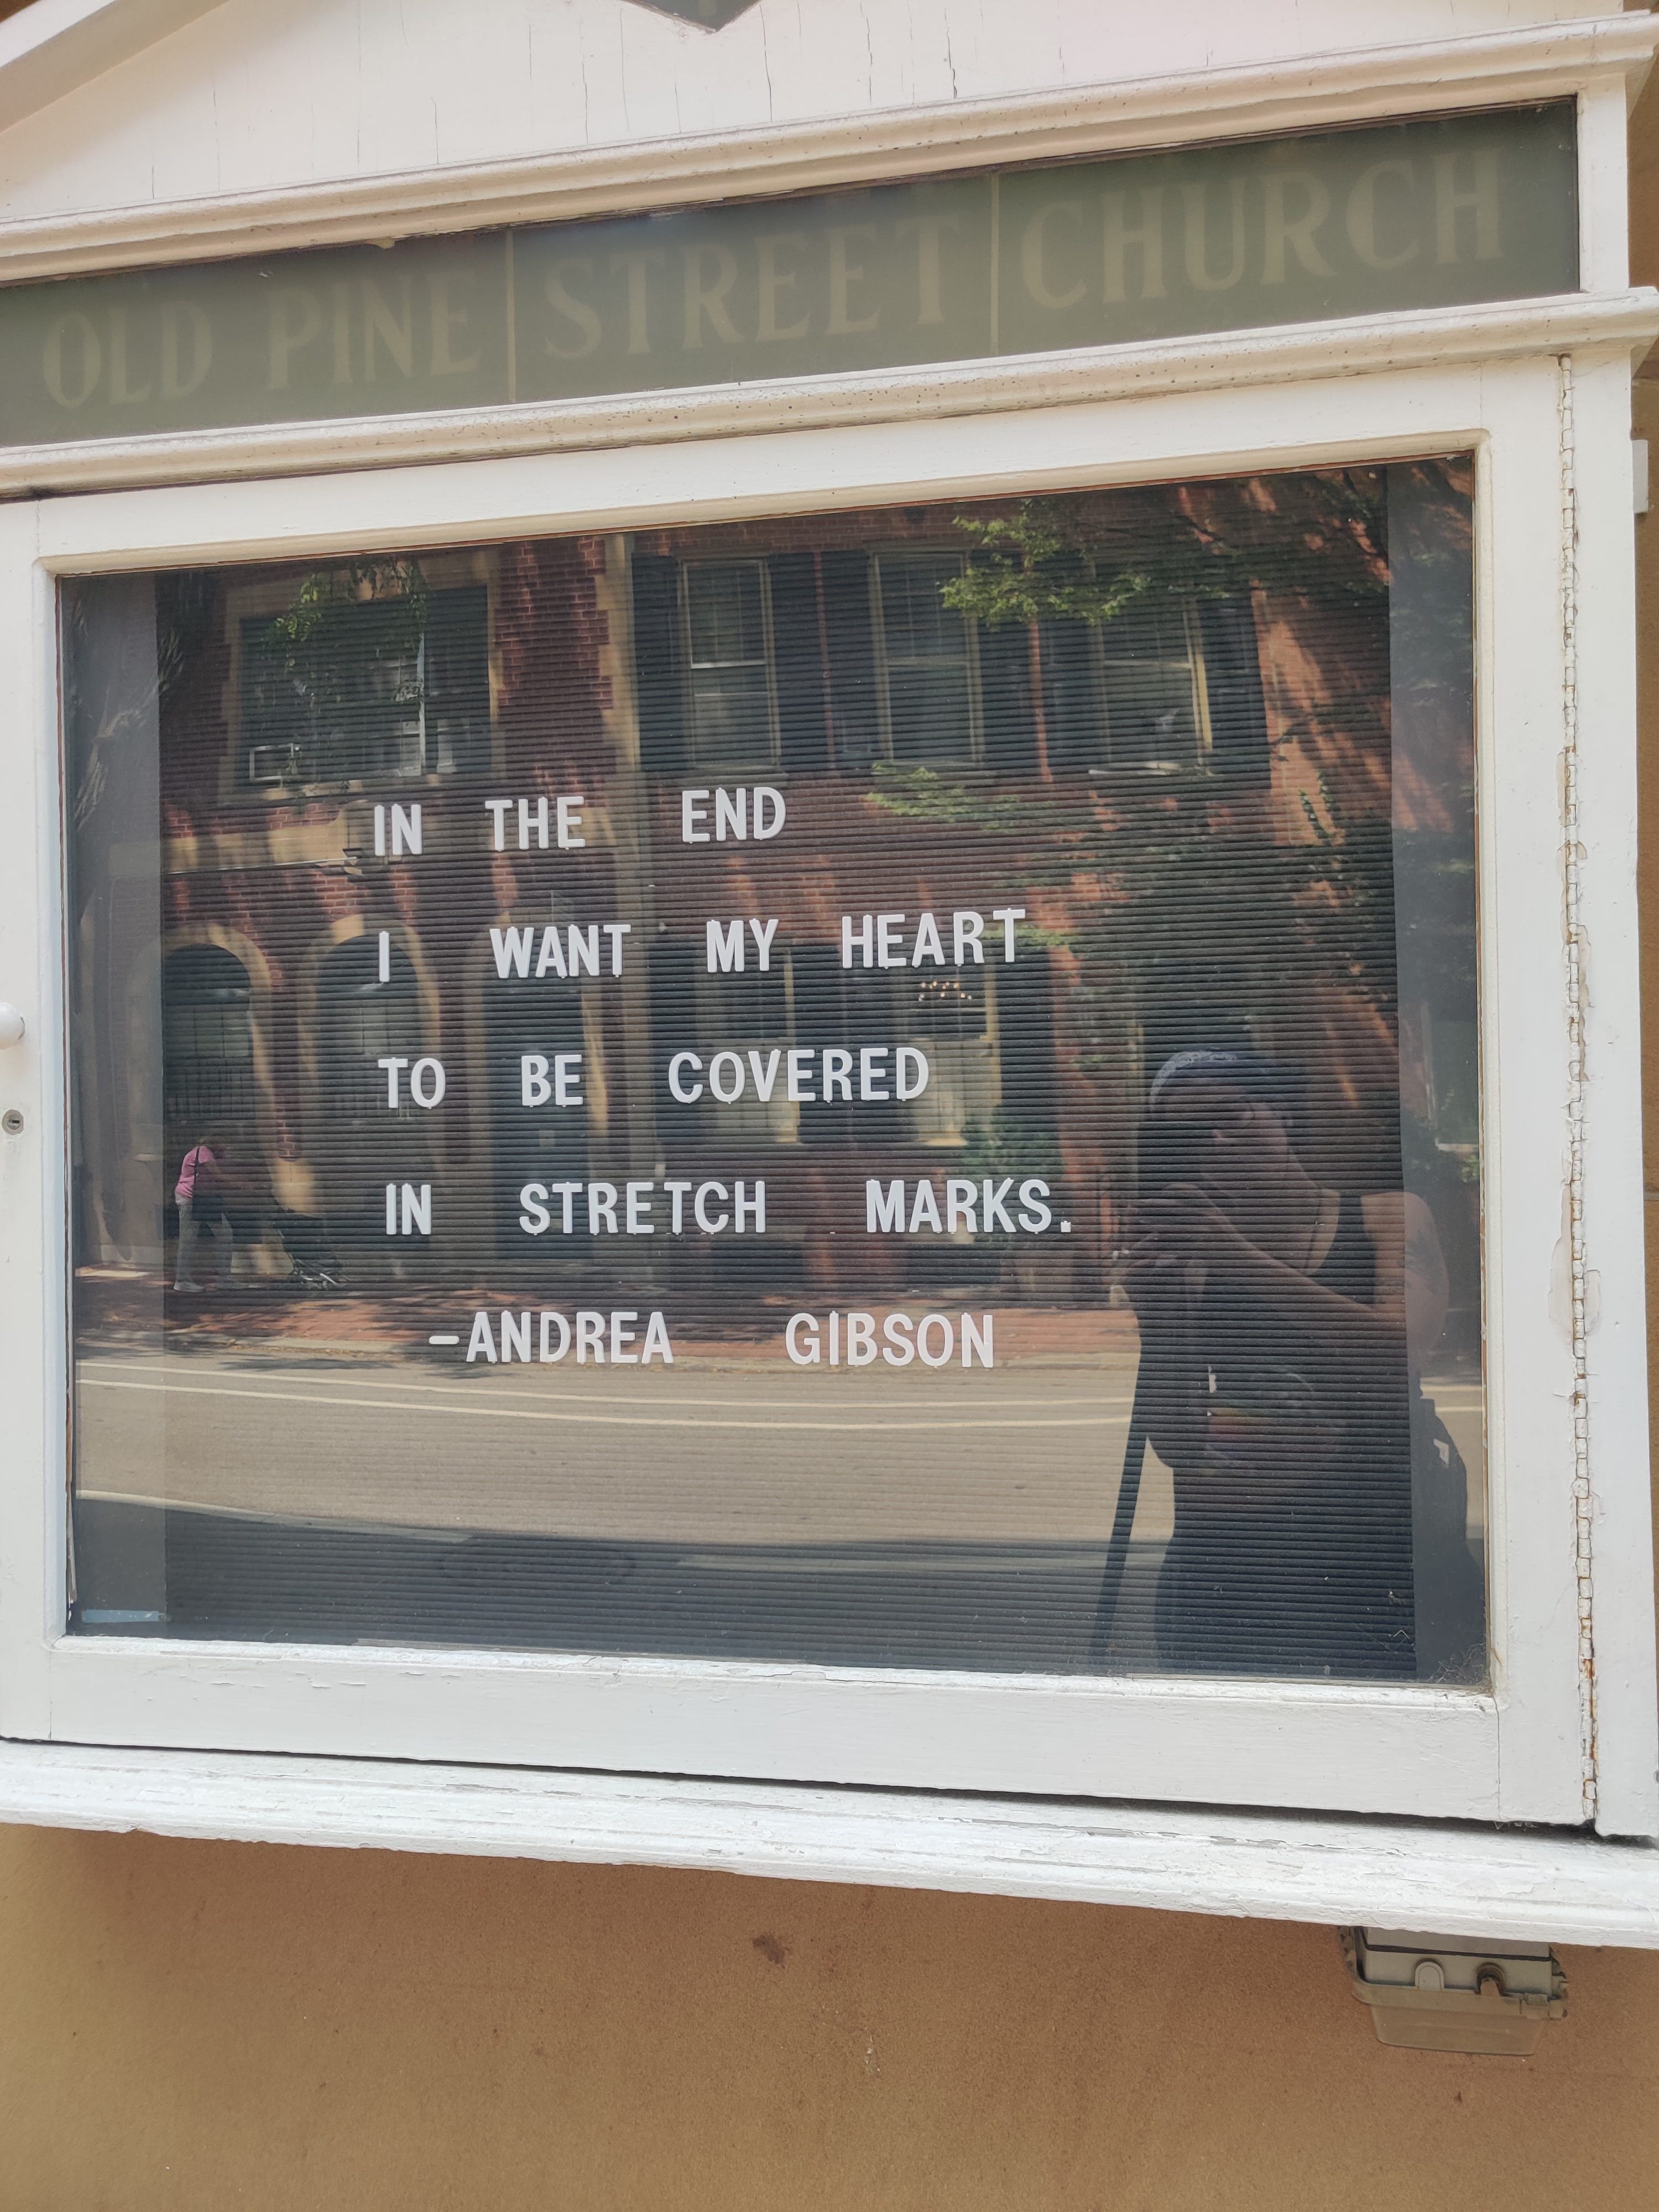 OLD PINE STREET CHURCH
IN THE END
I WANT MY HEART
TO BE COVERED
IN STRETCH MARKS.
-ANDREA GIBSON